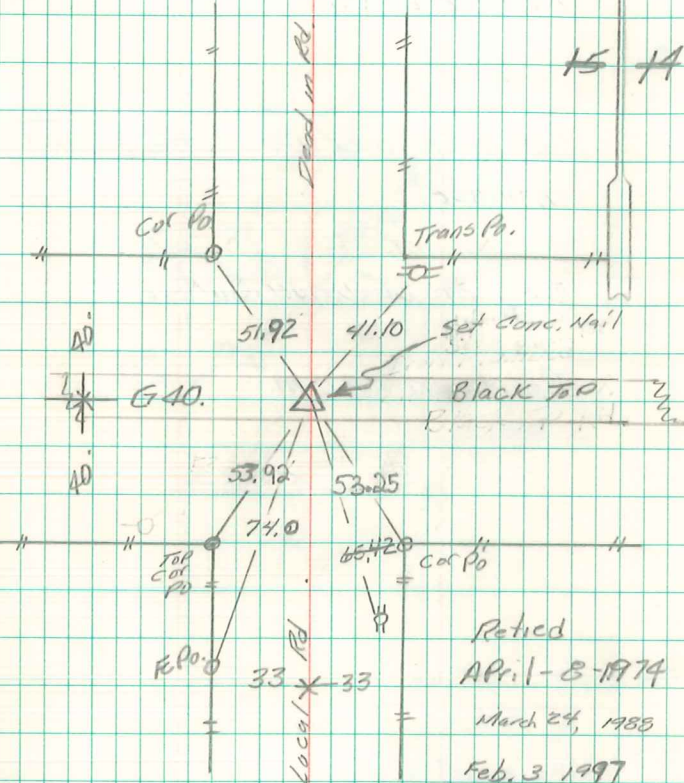 Dead in Rd.
15 14
Cor Po.
Trans Po.
51.92
41.10
Set Conc. Nail
40'
G40.
Black Top
40'
53.92
53.25
74.0
65.42
Top
Cor
Po
Cor Po
Fe Po.
33 33
Local Rd
Retied
April-8-1974
March 24, 1988
Feb. 3 1997